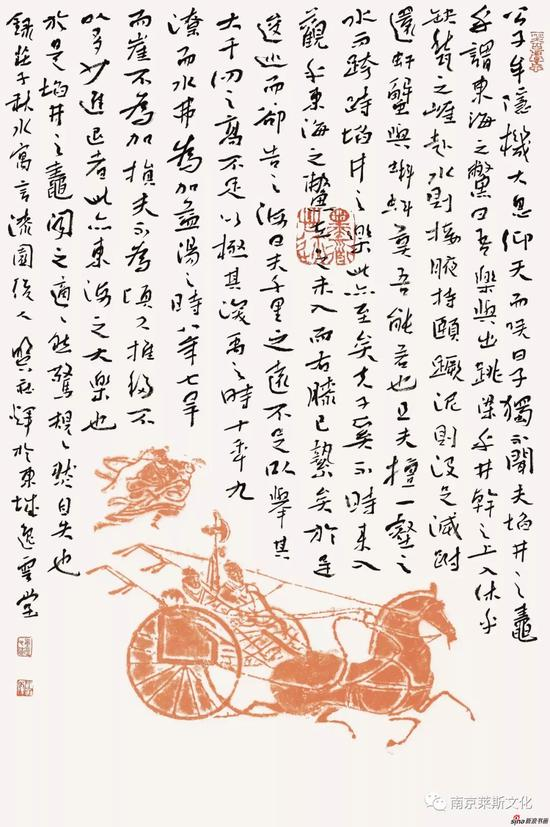 公子牟隱機大息仰天而咲曰子獨不聞夫埳井之鼃
乎謂東海之鱉曰吾樂與出跳梁乎井幹之上入休乎
缺甃之崖赴水則接腋持頤蹶泥則沒足滅跗
還虷蟹與蝌蚪莫吾能若也且夫擅一壑之
水而跨跱埳井之樂此亦至矣夫子奚不時來入
觀乎東海之鱉左足未入而右膝已縶矣於是
逡巡而卻告之海曰夫千里之遠不足以舉其
大千仞之高不足以極其深禹之時十年九
潦而水弗為加益湯之時八年七旱
而崖不為加損夫不為頃久推移不
以多少進退者此亦東海之大樂也
於是埳井之鼃聞之適〻然驚規〻然自失也
錄莊子秋水寓言漆園後人 於東城逸雲堂
南京莱斯文化
sina 新浪书画